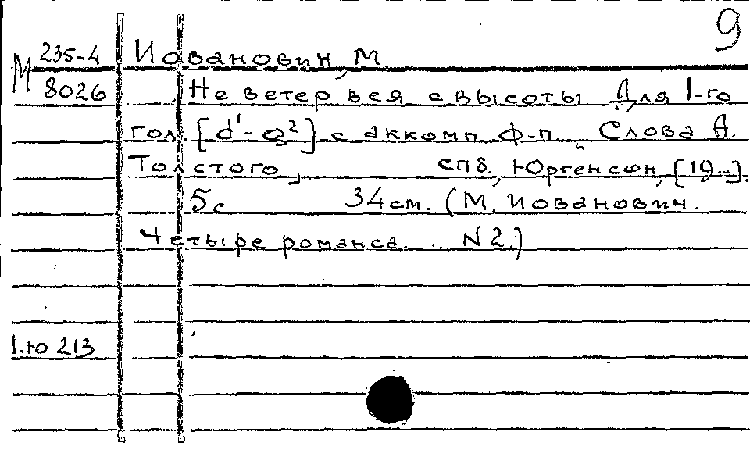 9
М 235-4 Иованович, М
8026 Не ветер вея с высоты. Для 1-го
гол. [d¹-a²] с аккомп. ф-п. Слова А.
Толстого, СПб, Юргенсон, [19..].
5с 34см. (М. Иованович.
Четыре романса... N 2.)
1.ю 213